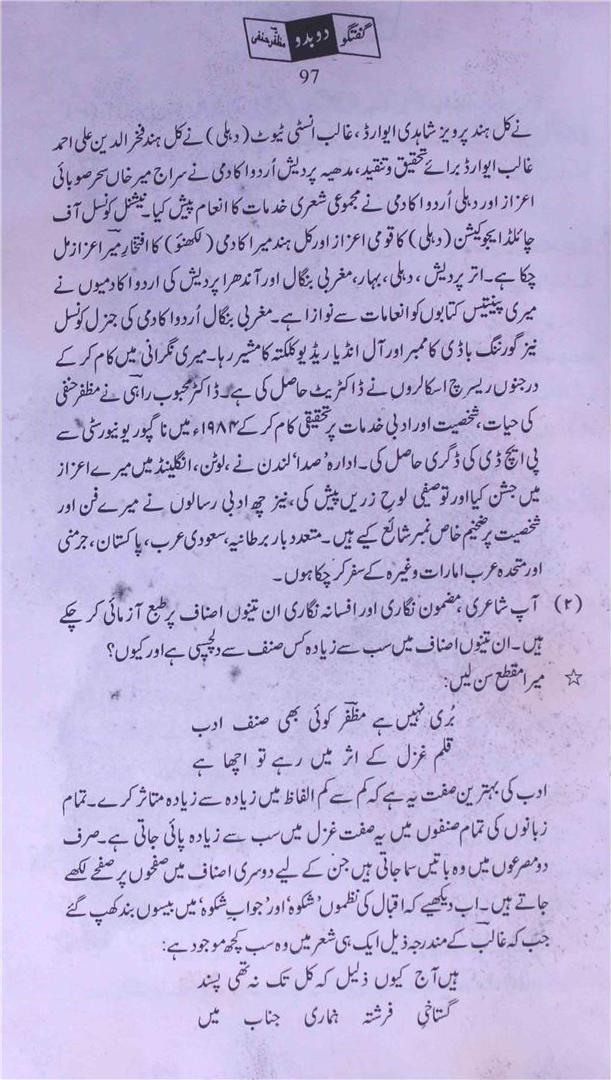 گفتگو دو بدو مظفر حنفی
97
نے کل ہند پرویز شاہدی ایوارڈ، غالب انسٹی ٹیوٹ (دہلی) نے کل ہند فخر الدین علی احمد
غالب ایوارڈ برائے تحقیق و تنقید، مدھیہ پردیش اُردو اکادمی نے سراج میر خاں سحر صوبائی
اعزاز اور دہلی اُردو اکادمی نے مجموعی شعری خدمات کا انعام پیش کیا۔ نیشنل کونسل آف
چائلڈ ایجوکیشن (دہلی) کا قومی اعزاز اور کل ہند میرا کادمی (لکھنؤ) کا افتخارِ میرؔ اعزاز مل
چکا ہے۔ اتر پردیش، دہلی، بہار، مغربی بنگال اور آندھرا پردیش کی اردو اکادمیوں نے
میری پینتیس کتابوں کو انعامات سے نوازا ہے۔ مغربی بنگال اُردو اکادمی کی جنرل کونسل
نیز گورننگ باڈی کا ممبر اور آل انڈیا ریڈیو کلکتہ کا مشیر رہا۔ میری نگرانی میں کام کر کے
درجنوں ریسرچ اسکالروں نے ڈاکٹریٹ حاصل کی ہے۔ ڈاکٹر محبوب راہیؔ نے مظفر حنفی
کی حیات، شخصیت اور ادبی خدمات پر تحقیقی کام کر کے ۱۹۸۴ء میں ناگپور یونیورسٹی سے
پی ایچ ڈی کی ڈگری حاصل کی۔ ادارہ ’صدا‘ لندن نے، لوٹن، انگلینڈ میں میرے اعزاز
میں جشن کیا اور توصیفی لوحِ زریں پیش کی، نیز چھ ادبی رسالوں نے میرے فن اور
شخصیت پر ضخیم خاص نمبر شائع کیے ہیں۔ متعدد بار برطانیہ، سعودی عرب، پاکستان، جرمنی
اور متحدہ عرب امارات وغیرہ کے سفر کر چکا ہوں۔
(۲) آپ شاعری، مضمون نگاری اور افسانہ نگاری ان تینوں اصناف پر طبع آزمائی کر چکے
ہیں۔ ان تینوں اصناف میں سب سے زیادہ کس صنف سے دلچسپی ہے اور کیوں؟
☆ میرا مقطع سن لیں:
بُری نہیں ہے مظفرؔ کوئی بھی صنف ادب
قلم غزل کے اثر میں رہے تو اچھا ہے
ادب کی بہترین صفت یہ ہے کہ کم سے کم الفاظ میں زیادہ سے زیادہ متاثر کرے۔ تمام
زبانوں کی تمام صنفوں میں یہ صفت غزل میں سب سے زیادہ پائی جاتی ہے۔ صرف
دو مصرعوں میں وہ باتیں سما جاتی ہیں جن کے لیے دوسری اصناف میں صفحوں پر صفحے لکھے
جاتے ہیں۔ اب دیکھیے کہ اقبال کی نظموں ’شکوہ‘ اور ’جوابِ شکوہ‘ میں بیسوں بند کھپ گئے
جب کہ غالبؔ کے مندرجہ ذیل ایک ہی شعر میں وہ سب کچھ موجود ہے:
ہیں آج کیوں ذلیل کہ کل تک نہ تھی پسند
گستاخیِ فرشتہ ہماری جناب میں